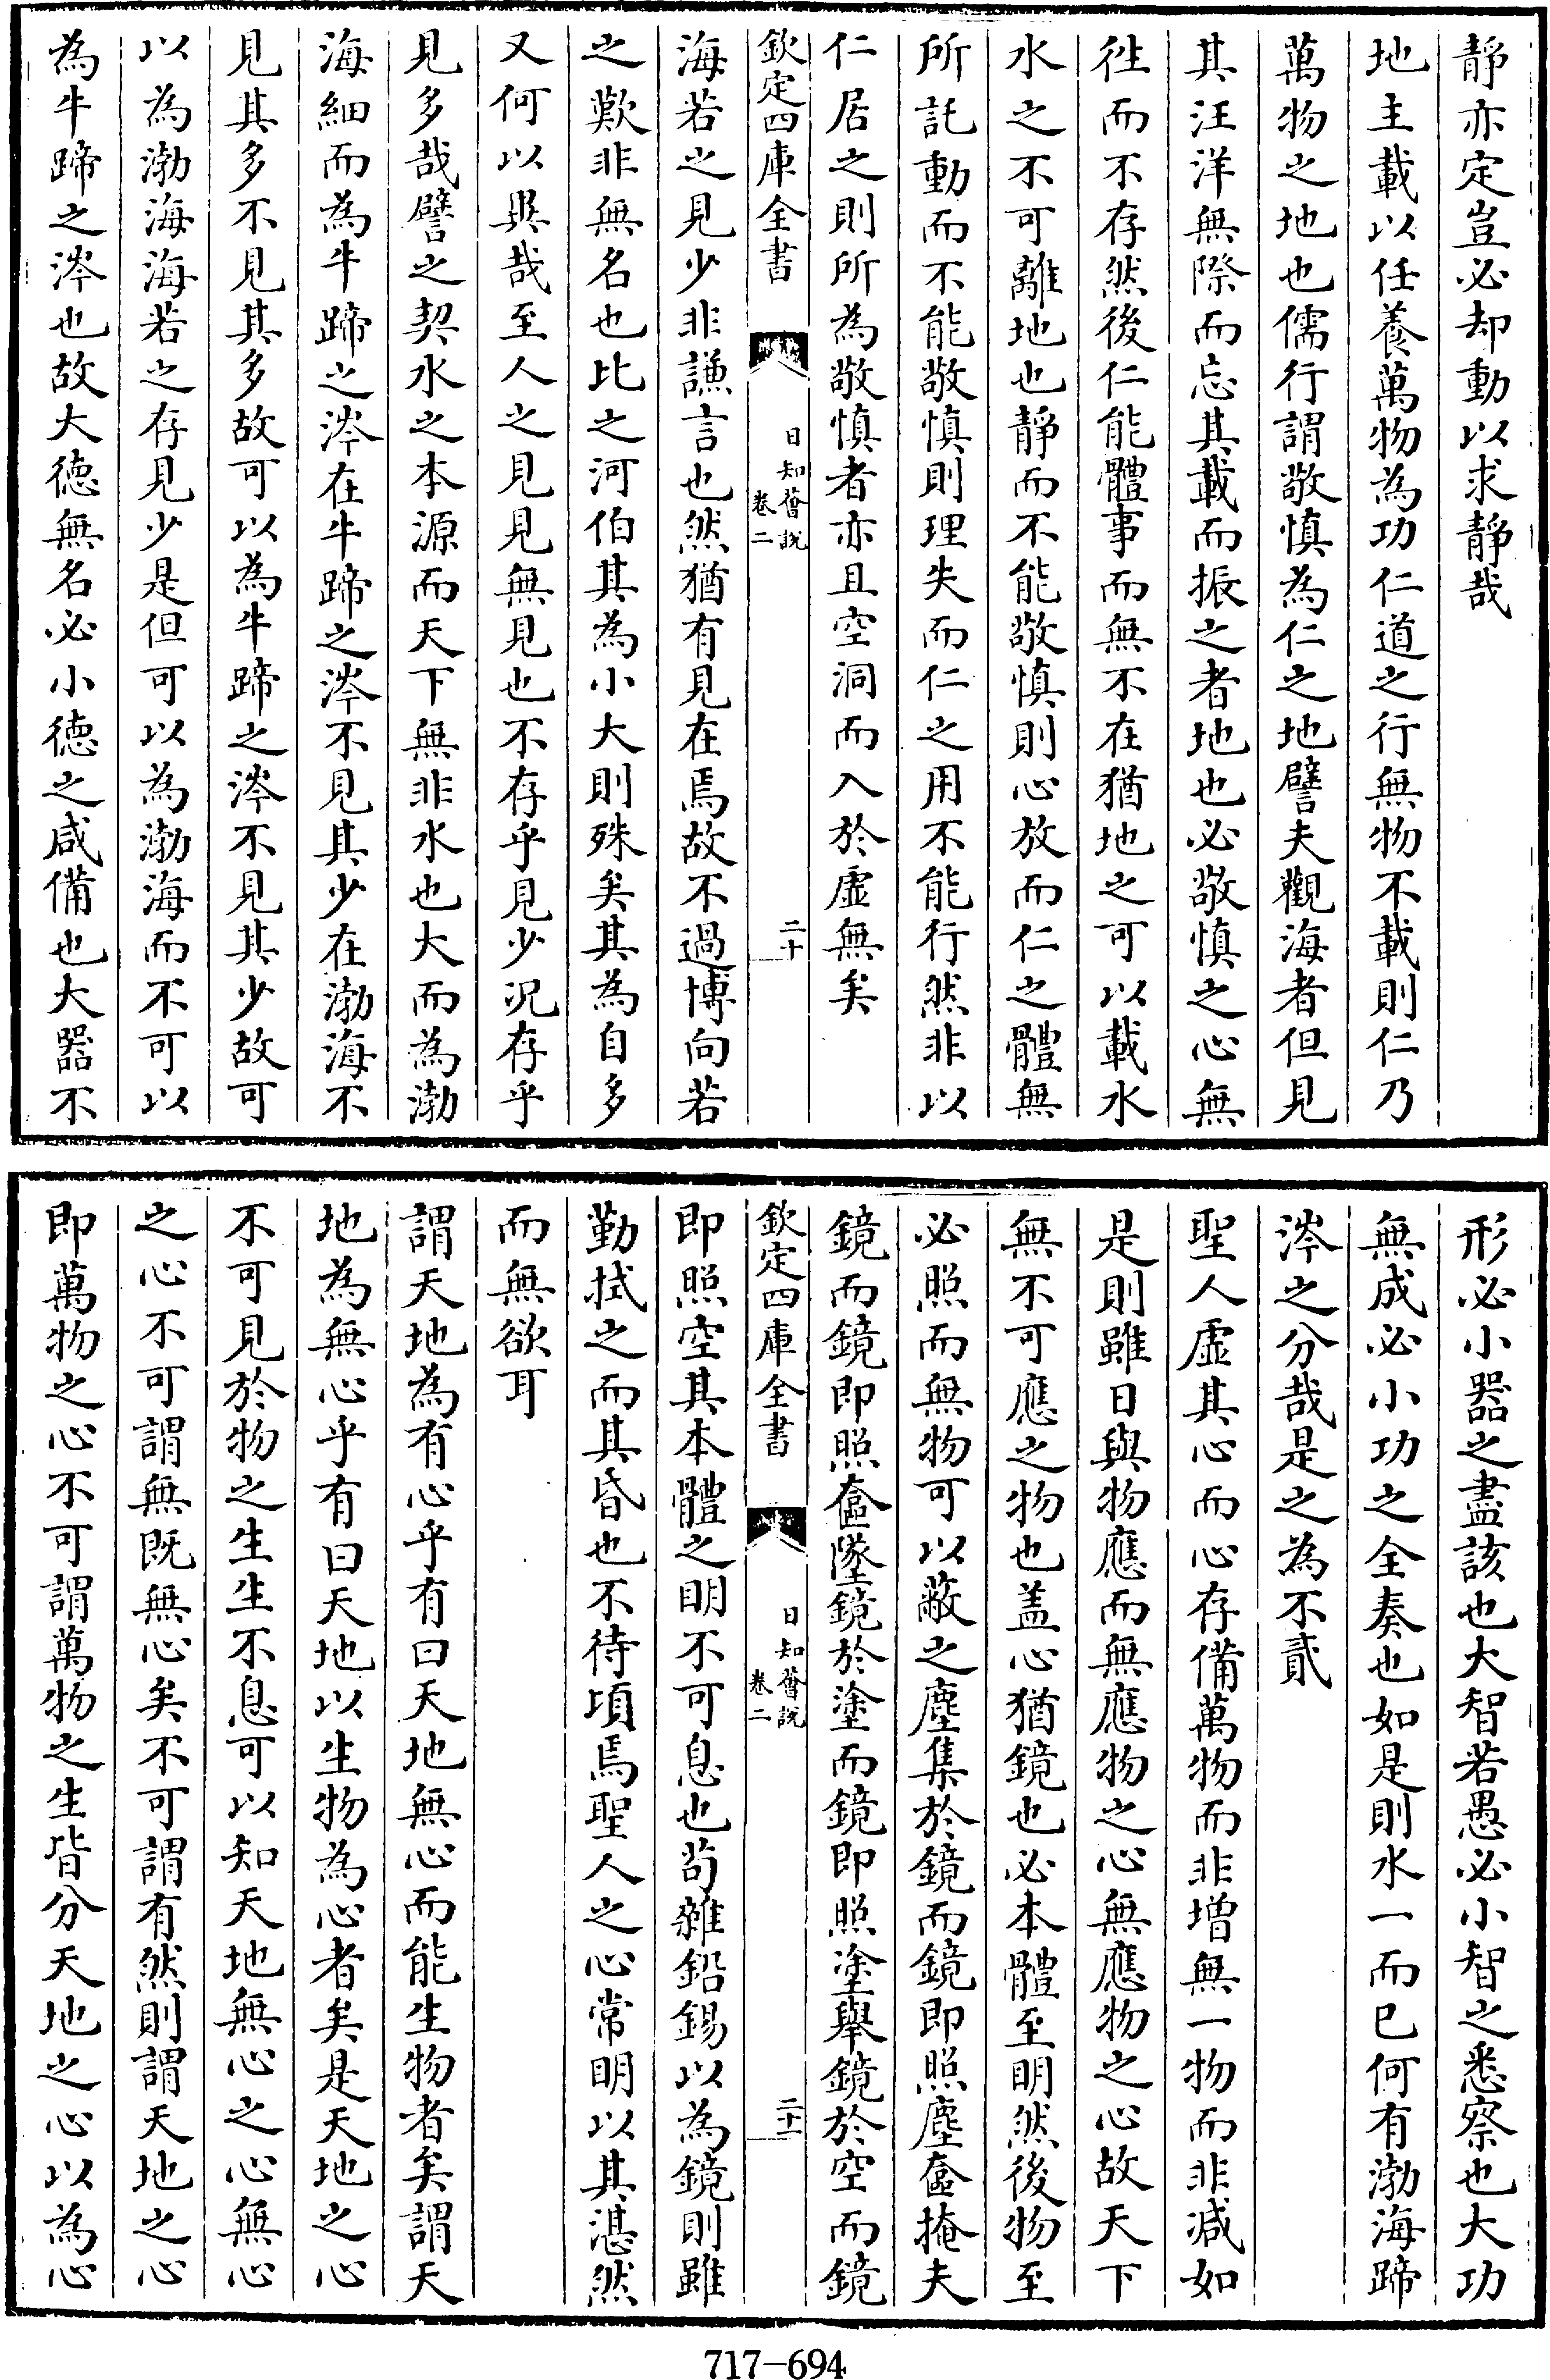 靜亦定豈必却動以求靜哉
地主載以任養萬物為功仁道之行無物不載則仁乃
萬物之地也儒行謂敬慎為仁之地譬夫觀海者但見
其汪洋無際而忘其載而振之者地也必敬慎之心無
徃而不存然後仁能體事而無不在猶地之可以載水
水之不可離地也靜而不能敬慎則心放而仁之體無
所託動而不能敬慎則理失而仁之用不能行然非以
仁居之則所為敬慎者亦且空洞而入於虛無矣
欽定四庫全書
日知薈說
卷二
二十
海若之見少非謙言也然猶有見在焉故不過博向若
之歎非無名也比之河伯其為小大則殊矣其為自多
又何以異哉至人之見見無見也不存乎見少况存乎
見多哉譬之契水之本源而天下無非水也大而為渤
海細而為牛蹄之涔在牛蹄之涔不見其少在渤海不
見其多不見其多故可以為牛蹄之涔不見其少故可
以為渤海海若之存見少是但可以為渤海而不可以
為牛蹄之涔也故大徳無名必小徳之咸備也大器不
形必小器之盡該也大智若愚必小智之悉察也大功
無成必小功之全奏也如是則水一而已何有渤海蹄
涔之分哉是之為不貳
聖人虛其心而心存備萬物而非增無一物而非减如
是則雖日與物應而無應物之心無應物之心故天下
無不可應之物也盖心猶鏡也必本體至明然後物至
必照而無物可以蔽之塵集於鏡而鏡即照塵奩掩夫
鏡而鏡即照奩墜鏡於塗而鏡即照塗舉鏡於空而鏡
欽定四庫全書
日知薈說
卷二
二十一
即照空其本體之明不可息也苟雜鉛錫以為鏡則雖
勤拭之而其昏也不待頃焉聖人之心常明以其湛然
而無欲耳
謂天地為有心乎有曰天地無心而能生物者矣謂天
地為無心乎有曰天地以生物為心者矣是天地之心
不可見於物之生生不息可以知天地無心之心無心
之心不可謂無既無心矣不可謂有然則謂天地之心
即萬物之心不可謂萬物之生皆分天地之心以為心
717-694